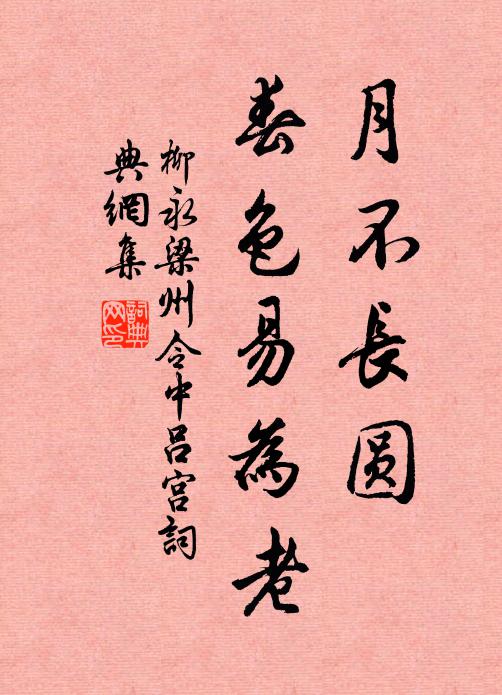 月不長圆
春色易為老
柳永梁州令中呂宮詞
典網集
詞典
网印